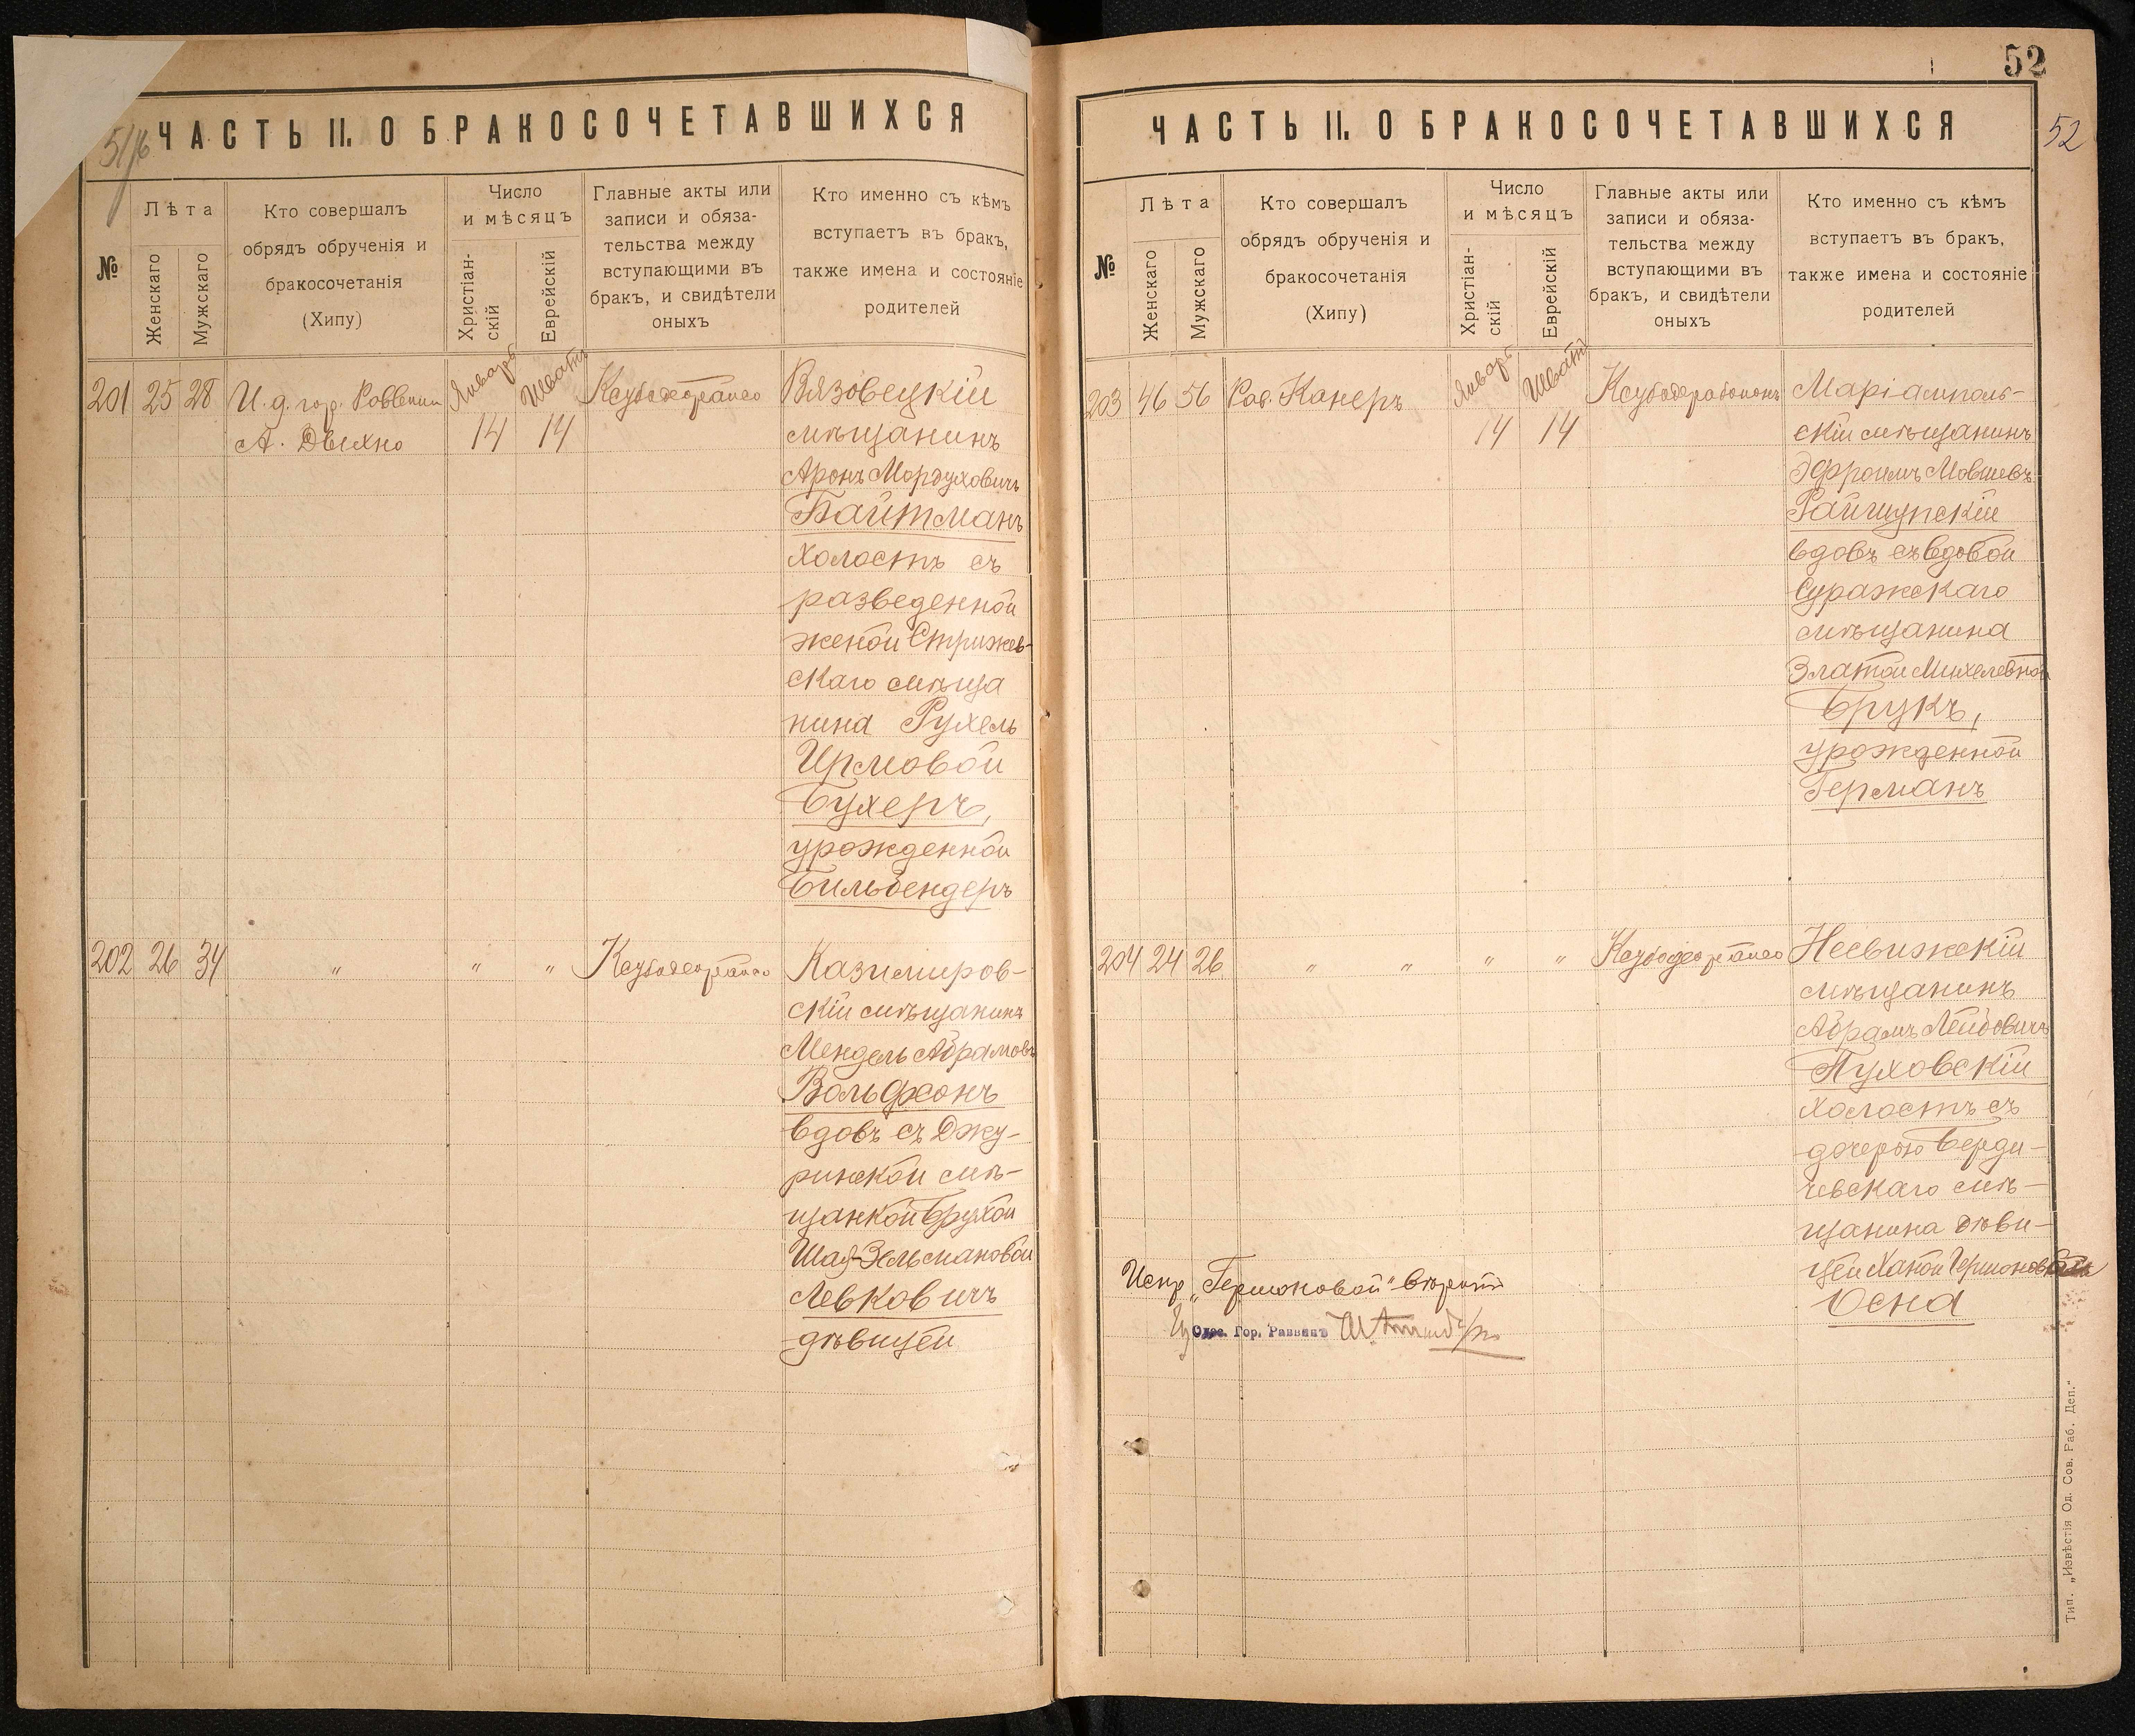 51/16
ЧАСТЬ II. О БРАКОСОЧЕТАВШИХСЯ
№
Лѣта
Женскаго
Мужскаго
Кто совершалъ
обрядъ обрученія и
бракосочетанія
(Хипу)
Число
и мѣсяцъ
Христіан-
скій
Еврейскій
Главные акты или
записи и обяза-
тельства между
вступающими въ
бракъ, и свидѣтели
оныхъ
Кто именно съ кѣмъ
вступаетъ въ бракъ,
также имена и состояніе
родителей
201 25 28
И. д. гор. Раввина
Январь
14
Шватъ
14
Вязовецкій
мѣщанинъ
Аронъ Мордуховичъ
Байтманъ
холостъ съ
разведенной
женой Стрижев-
скаго мѣща
нина Рухель
Ирмовой
Бухеръ,
урожденной
Бильбендеръ
202 26 34
" " "
Казимиров-
скій мѣщанинъ
Мендель Абрамовъ
Вольфсонъ
вдовъ съ Джу-
ринской мѣ-
щанкой Брухой
Шая-Зельмановой
Левковичъ
дѣвицей
52
ЧАСТЬ II. О БРАКОСОЧЕТАВШИХСЯ
52
№
Лѣта
Женскаго
Мужскаго
Кто совершалъ
обрядъ обрученія и
бракосочетанія
(Хипу)
Число
и мѣсяцъ
Христіан-
скій
Еврейскій
Главные акты или
записи и обяза-
тельства между
вступающими въ
бракъ, и свидѣтели
оныхъ
Кто именно съ кѣмъ
вступаетъ въ бракъ,
также имена и состояніе
родителей
203 46 56
Рав. Канеръ
Январь
14
Шватъ
14
Маріамполь-
скій мѣщанинъ
Эфроимъ Мовшевъ
Райшупскій
вдовъ съ вдовой
Суражскаго
мѣщанина
Златой Михелевной
Брукъ,
урожденной
Германъ
204 24 26
" " " "
Несвижскій
мѣщанинъ
Абрамъ Лейбовичъ
Пуховскій
холостъ съ
дочерью Берди-
чевскаго мѣ-
щанина дѣви-
цей Ханой Гершоновой
Осна
Испр. „Гершоновой" вѣрить
Одес. Гор. Раввинъ
Тип. „Извѣстія Од. Сов. Раб. Деп."